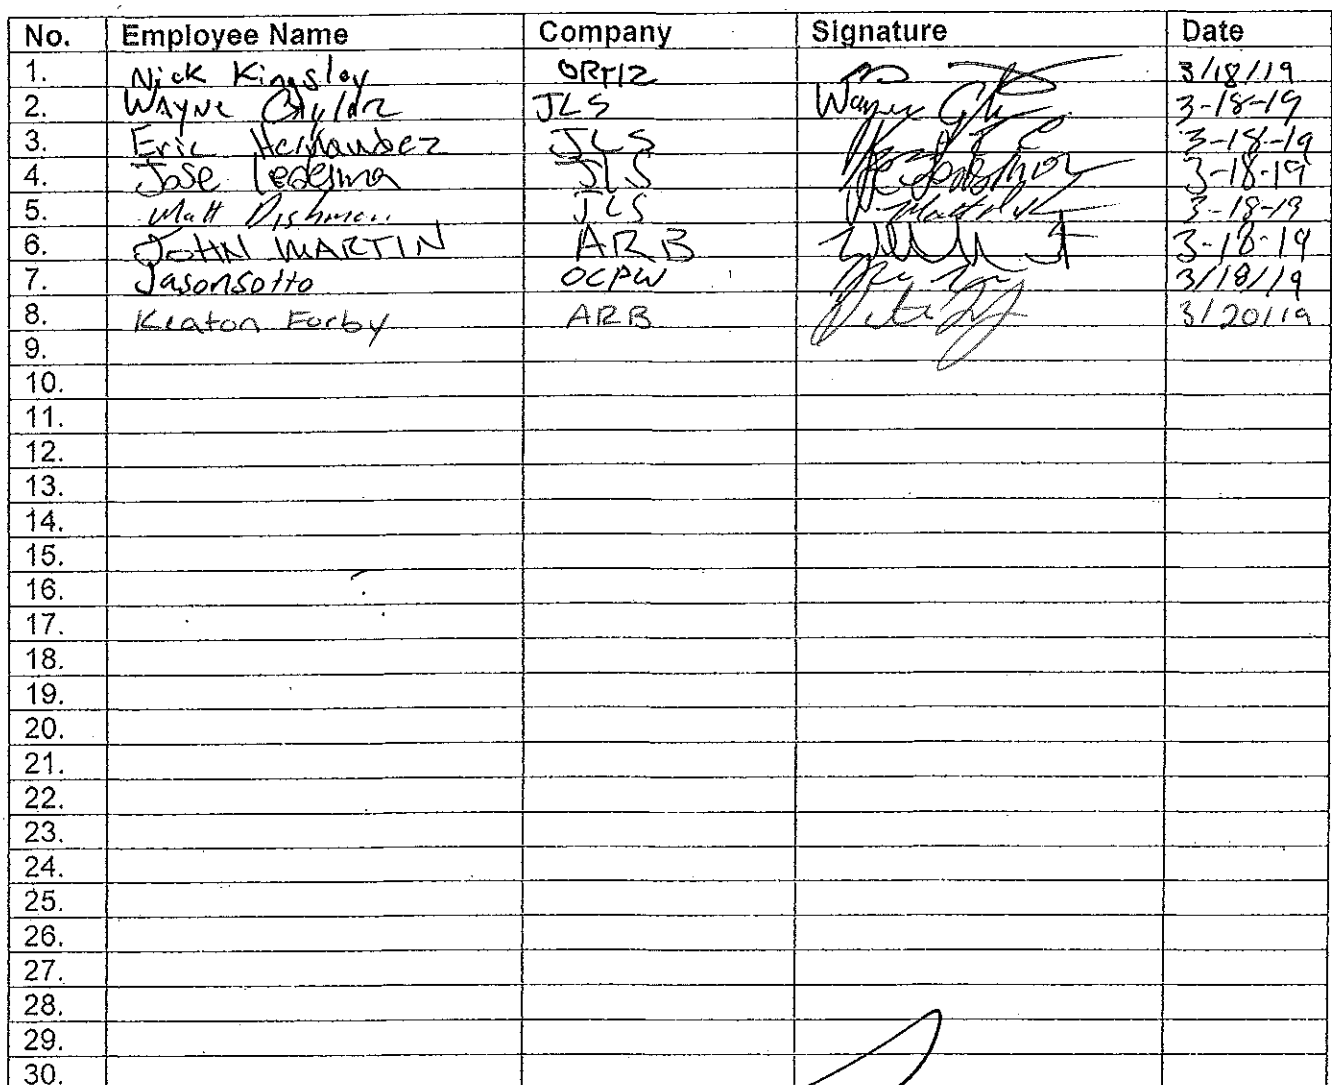 No. Employee Name Company Signature Date
1. Nick Kingsley ORTIZ 3/18/19
2. WAYNE JLS Wayne 3-18-19
3. Eric Hernandez JLS 3-18-19
4. Jose Ledesma JLS 3-18-19
5. Matt Dishman JLS Matt 3-18-19
6. JOHN MARTIN ARB 3-18-19
7. Jason Sotto OCPW 3/18/19
8. Keaton Forby ARB 3/20/19
9.
10.
11.
12.
13.
14.
15.
16.
17.
18.
19.
20.
21.
22.
23.
24.
25.
26.
27.
28.
29.
30.